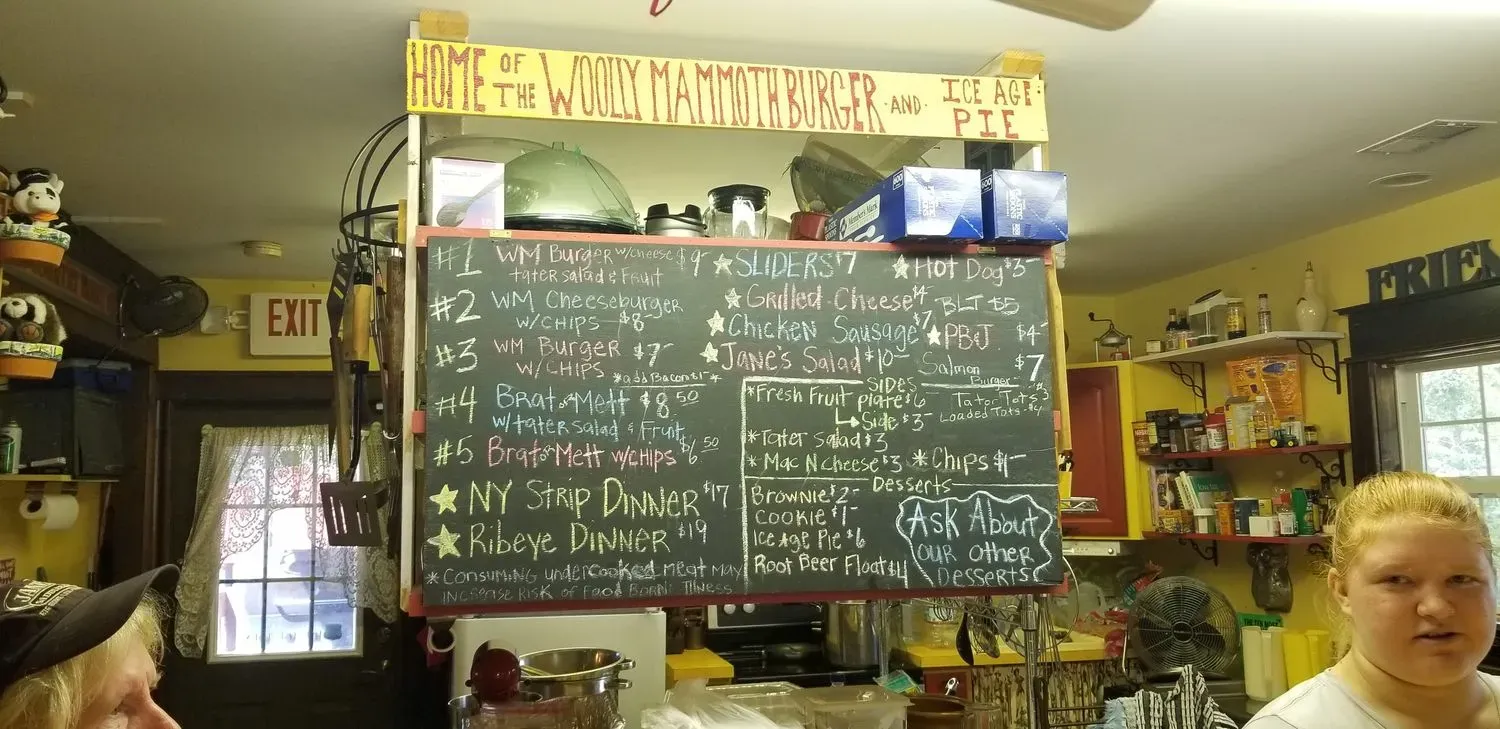 HOME OF THE WOOLLY MAMMOTH BURGER AND ICE AGE PIE
#1 WM Burger w/cheese $9-
tater salad & Fruit
#2 WM Cheeseburger
w/CHIPS $8
#3 WM Burger $7-
w/CHIPS
*add Bacon $1-*
#4 Brat or Mett $8.50
w/tater salad & Fruit
#5 Brat or Mett w/CHIPS $6.50
NY STRIP DINNER $17
Ribeye DINNER $19
*Consuming undercooked meat may
increase Risk of Food Borne Illness
SLIDERS $7
Hot Dog $3-
Grilled Cheese $4
BLT $5
Chicken Sausage $7
PB&J $4-
Jane's Salad $10-
Salmon Burger $7
SIDES
*Fresh Fruit plate $6
Side $3-
Tator Tots $3
Loaded Tots $4
*Tater Salad $3
*Mac N cheese $3
*Chips $1-
Desserts
Brownie $2-
Cookie $1-
Ice Age Pie $6
Root Beer Float $4
Ask About
our other
Desserts
EXIT
Member's Mark
FRIEN